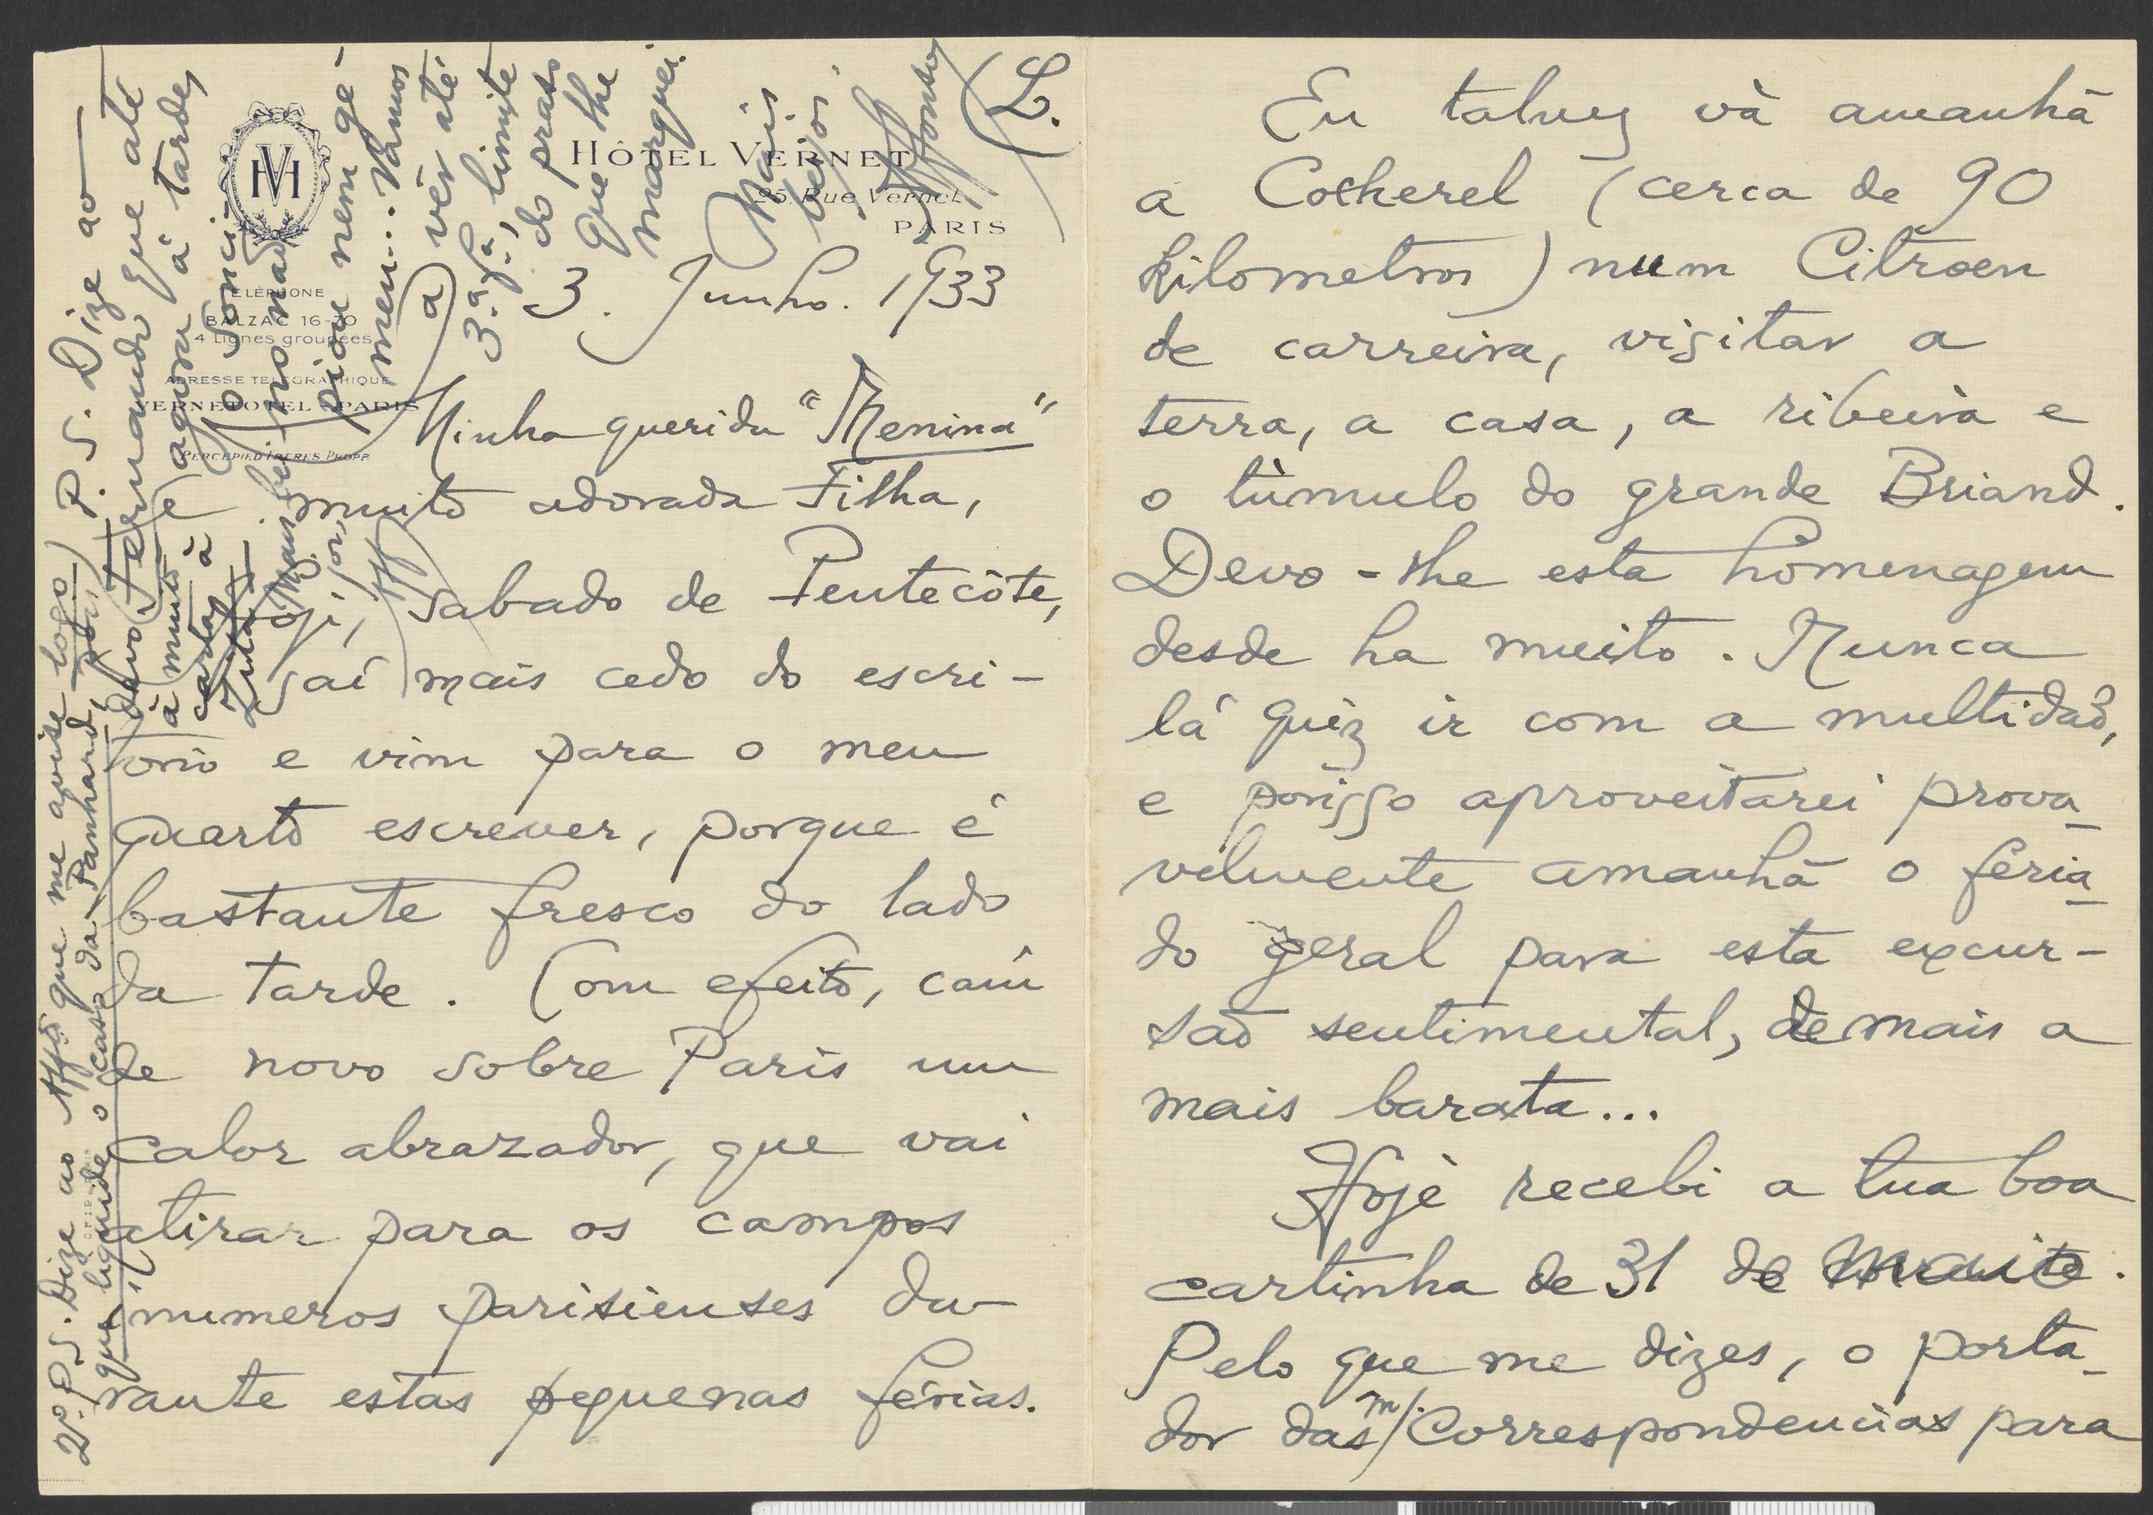 HÔTEL VERNET
25, Rue Vernet
PARIS
TÉLÉPHONE
BALZAC 16-70
4 Lignes groupées
ADRESSE TÉLÉGRAPHIQUE
VERNETOTEL - PARIS
PERCEPIED FRÈRES PROPP.
(L.
3. Junho. 1933
Minha querida "Menina"
e muito adorada Filha,
Hoje, sabado de Pentecôte,
saí mais cedo do escri-
torio e vim para o meu
quarto escrever, porque é
bastante fresco do lado
da tarde. Com efeito, caíu
de novo sobre Paris um
calor abrazador, que vai
atirar para os campos
inumeros parisienses du-
rante estas pequenas férias.
Eu talvez và amanhã
a Cocherel (cerca de 90
kilometros) num Citroen
de carreira, visitar a
terra, a casa, a ribeira e
o tùmulo do grande Briand.
Devo-lhe esta homenagem
desde ha muito. Nunca
lá quiz ir com a multidaõ,
e porisso aproveitarei prova-
velmente amanhã o feria-
do geral para esta excur-
saõ sentimental, de mais a
mais barata...
Hoje recebi a tua boa
cartinha de 31 de Maio.
Pelo que me dizes, o porta-
dor das m/. Correspondencias para
P.S. Dize ao
Fernando que até
agora à tarde,
o Sonci-
no não
piou nem ge-
meu... Vamos
a vêr até
3.ª fª, limite
do prazo
que lhe
marquei.
Mais
beijos.
Affonso
2º. P.S. Dize ao Affº que me avise logo
que liquide o caso da Panhard,